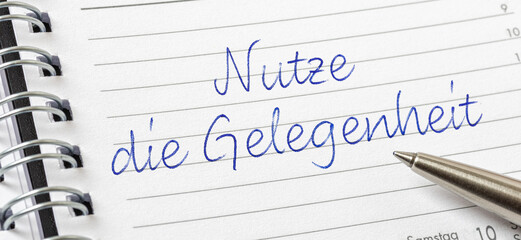 9
10
Nutze
die Gelegenheit
Samstag 10